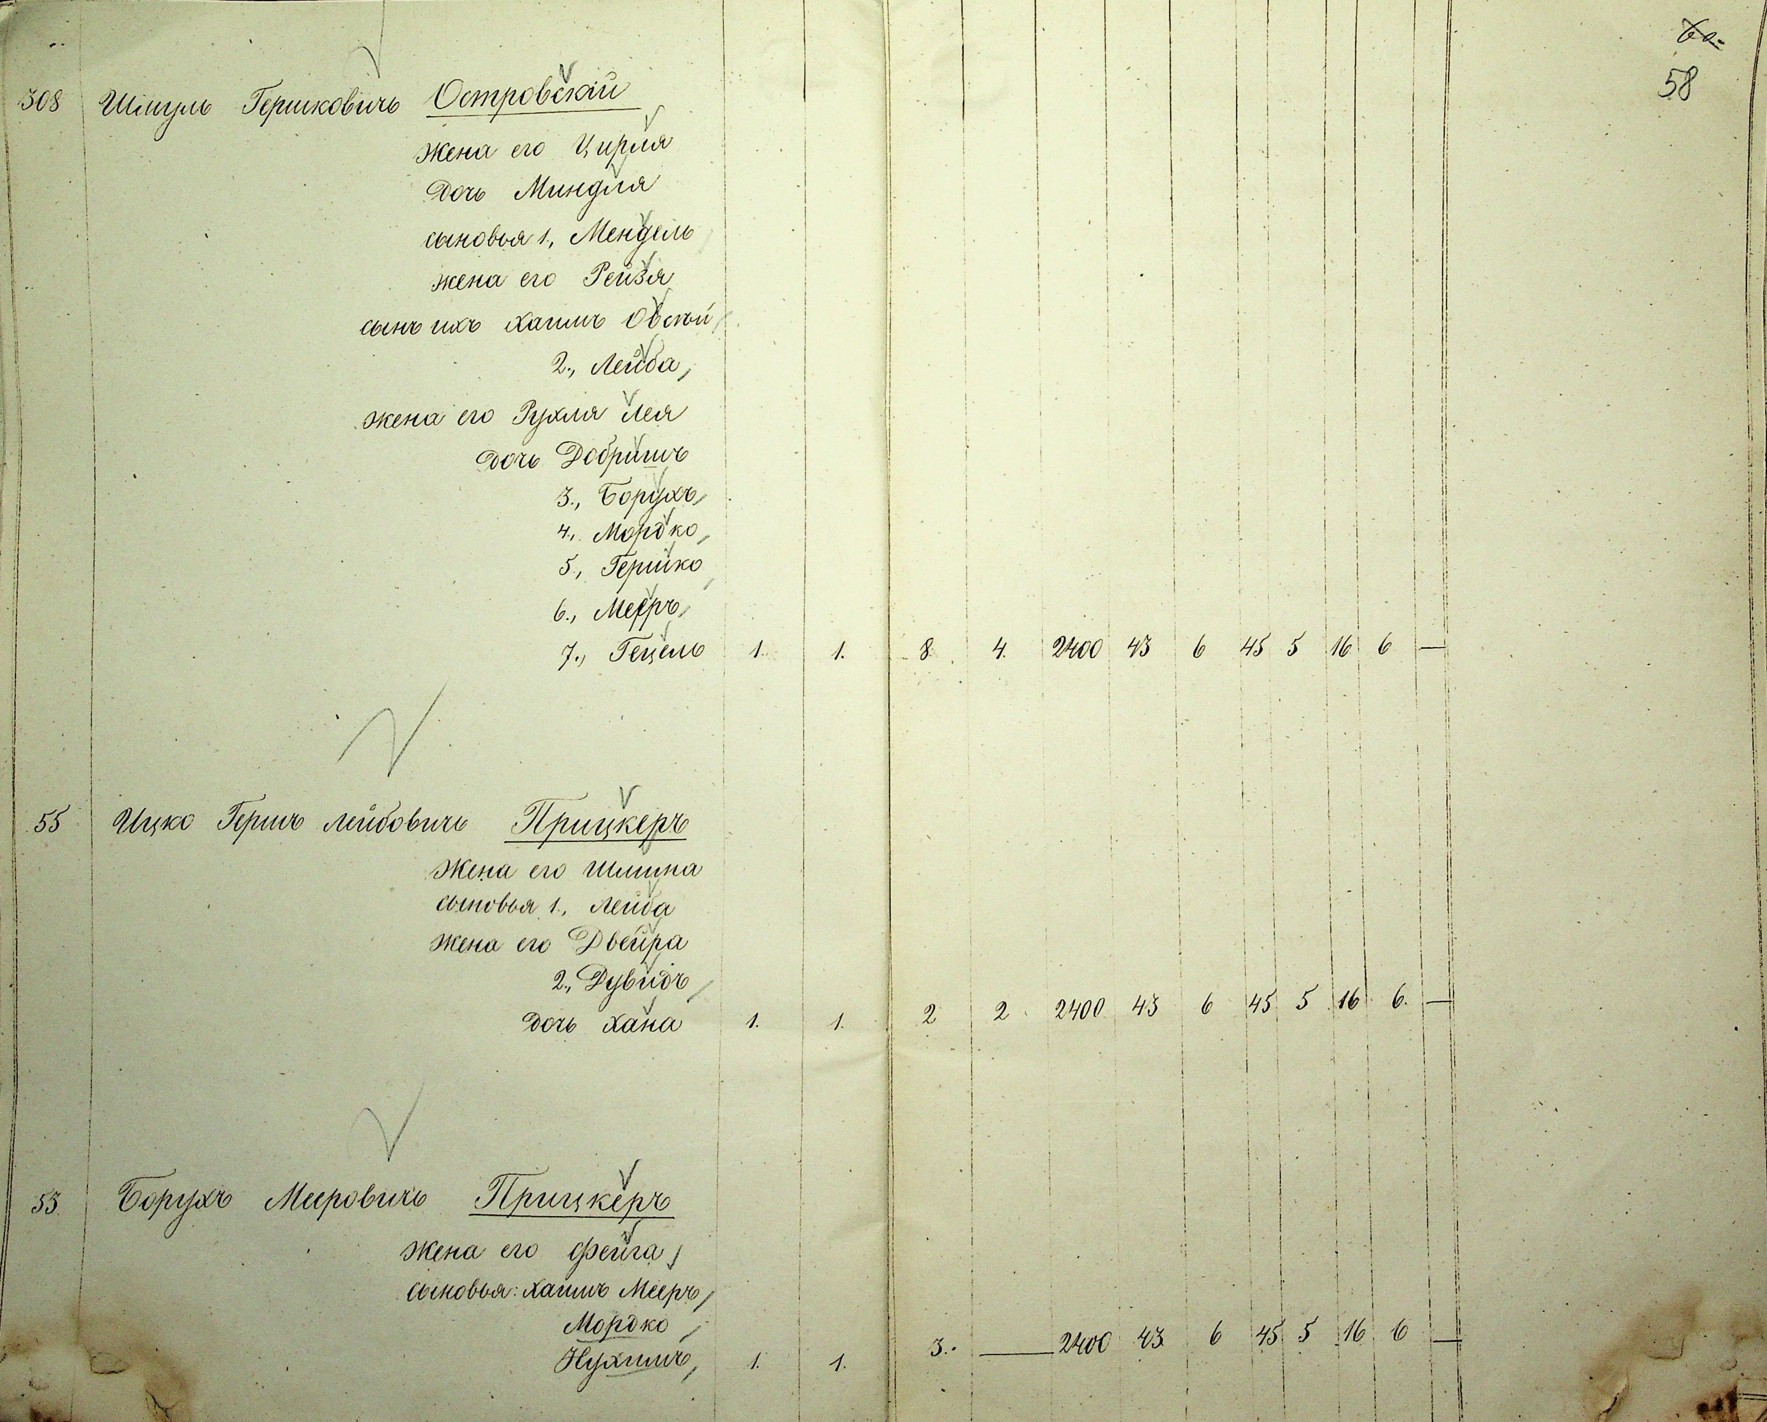 60.
58
308 Шмуль Гершковичъ Островскій
жена его Цирля
дочь Миндля
сыновья 1., Мендель
жена его Рейзя
сынъ ихъ Хаимъ Овсѣй
2., Лейба
жена его Рухля Лея
дочь Добришъ
3., Борухъ
4., Мордко
5., Гершко
6., Мееръ
7., Гецель 1. 1. 8. 4. 2400 43 6 45 5 16 6 —
55 Ицко Гершъ Лейбовичъ Прицкеръ
жена его
сыновья 1., Лейба
жена его Двейра
2., Дувидъ
дочь Хана 1. 1. 2 2. 2400 43 6 45 5 16 6. —
53 Борухъ Мееровичъ Прицкеръ
жена его Фейга
сыновья: Хаимъ Мееръ
Мордко
Нухимъ 1. 1. 3. — 2400 43 6 45 5 16 6 —